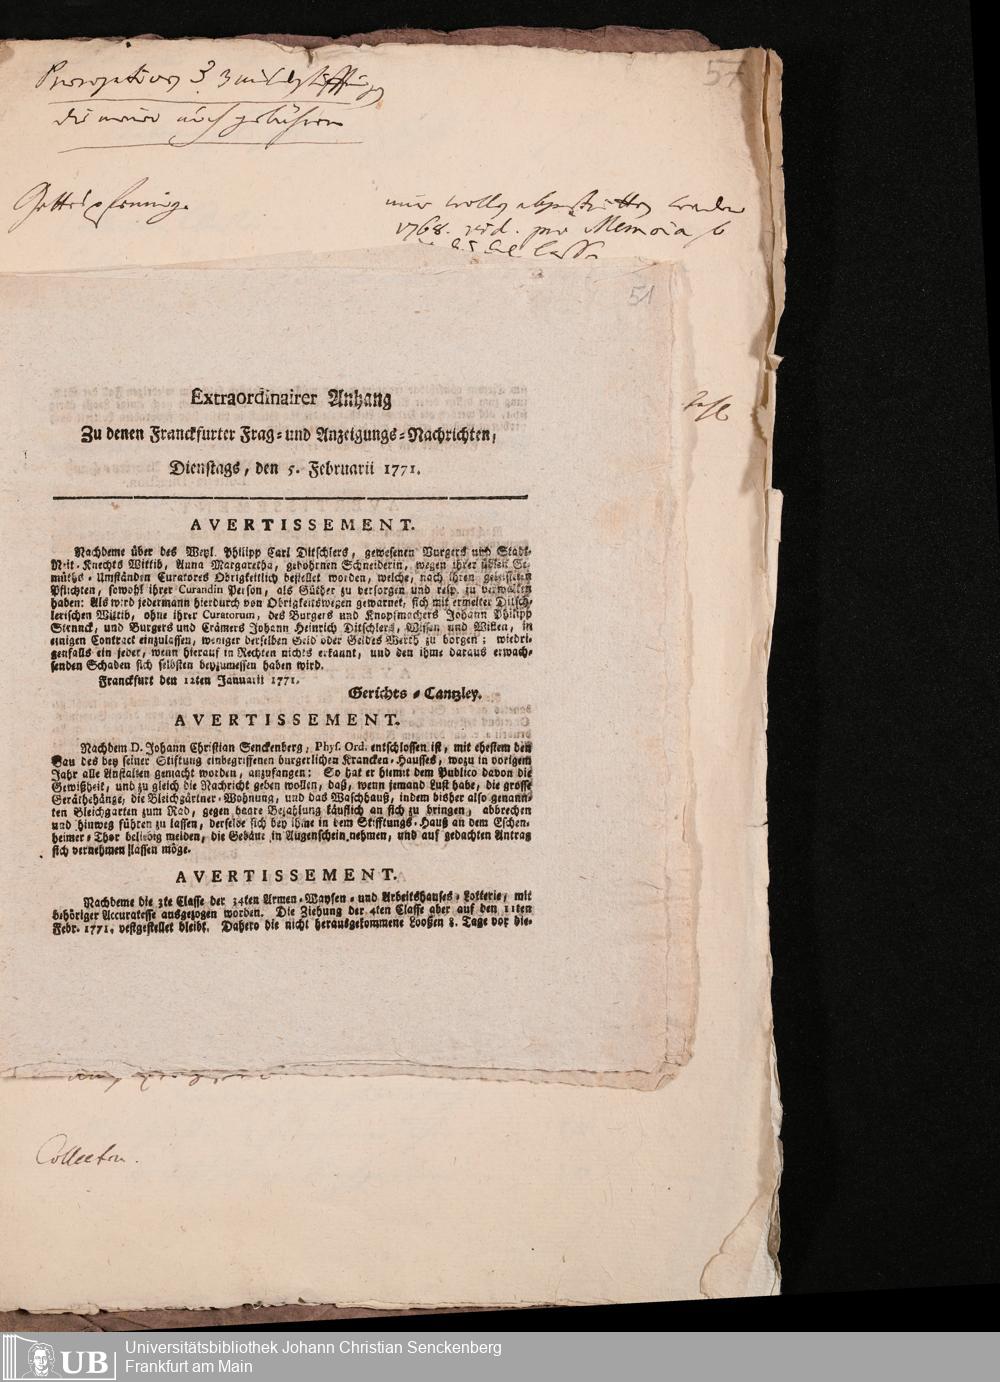 57
Gottespfennige
1768. vid. pro Memoria
51
Extraordinairer Anhang
Zu denen Franckfurter Frag- und Anzeigungs-Nachrichten,
Dienstags, den 5. Februarii 1771.
AVERTISSEMENT.
Nachdeme über des Weyl. Philipp Carl Ditschlers, gewesenen Burgers und Stadt-
Reit-Knechts Wittib, Anna Margaretha, gebohrnen Schneiderin, wegen ihrer üblen Ge-
müths-Umständen Curatores Obrigkeitlich bestellet worden, welche, nach ihren geleisteten
Pflichten, sowohl ihrer Curandin Person, als Güther zu versorgen und resp. zu verwalten
haben: Als wird jedermann hierdurch von Obrigkeitswegen gewarnet, sich mit ermelter Ditsch-
lerischen Wittib, ohne ihrer Curatorum, des Burgers und Knopfmachers Johann Philipp
Stennck, und Burgers und Crämers Johann Heinrich Ditschlers, Wissen und Willen, in
einigen Contract einzulassen, weniger derselben Geld oder Geldes Werth zu borgen; wiedri-
genfalls ein jeder, wenn hierauf in Rechten nichts erkannt, und den ihme daraus erwach-
senden Schaden sich selbsten beyzumessen haben wird.
Franckfurt den 12ten Januarii 1771.
Gerichts-Cantzley.
AVERTISSEMENT.
Nachdem D. Johann Christian Senckenberg, Phys. Ord. entschlossen ist, mit ehestem den
Bau des bey seiner Stiftung einbegriffenen burgerlichen Krancken-Hausses, wozu in vorigem
Jahr alle Anstalten gemacht worden, anzufangen: So hat er hiemit dem Publico davon die
Gewißheit, und zu gleich die Nachricht geben wollen, daß, wenn jemand Lust habe, die grosse
Geräthehänge, die Bleichgärtner-Wohnung, und das Waschhauß, indem bisher also genann-
ten Bleichgarten zum Rad, gegen baare Bezahlung käuflich an sich zu bringen, abbrechen
und hinweg führen zu lassen, derselbe sich bey ihme in dem Stifftungs-Hauß an dem Eschen-
heimer-Thor beliebig melden, die Gebäue in Augenschein nehmen, und auf gedachten Antrag
sich vernehmen lassen möge.
AVERTISSEMENT.
Nachdeme die 3te Classe der 34ten Armen-Waysen- und Arbeitshauses-Lotterie, mit
behöriger Accuratesse ausgezogen worden. Die Ziehung der 4ten Classe aber auf den 11ten
Febr. 1771. vestgestellet bleibt. Dahero die nicht herausgekommene Looßen 8. Tage vor die-
Collecten.
UB
Universitätsbibliothek Johann Christian Senckenberg
Frankfurt am Main